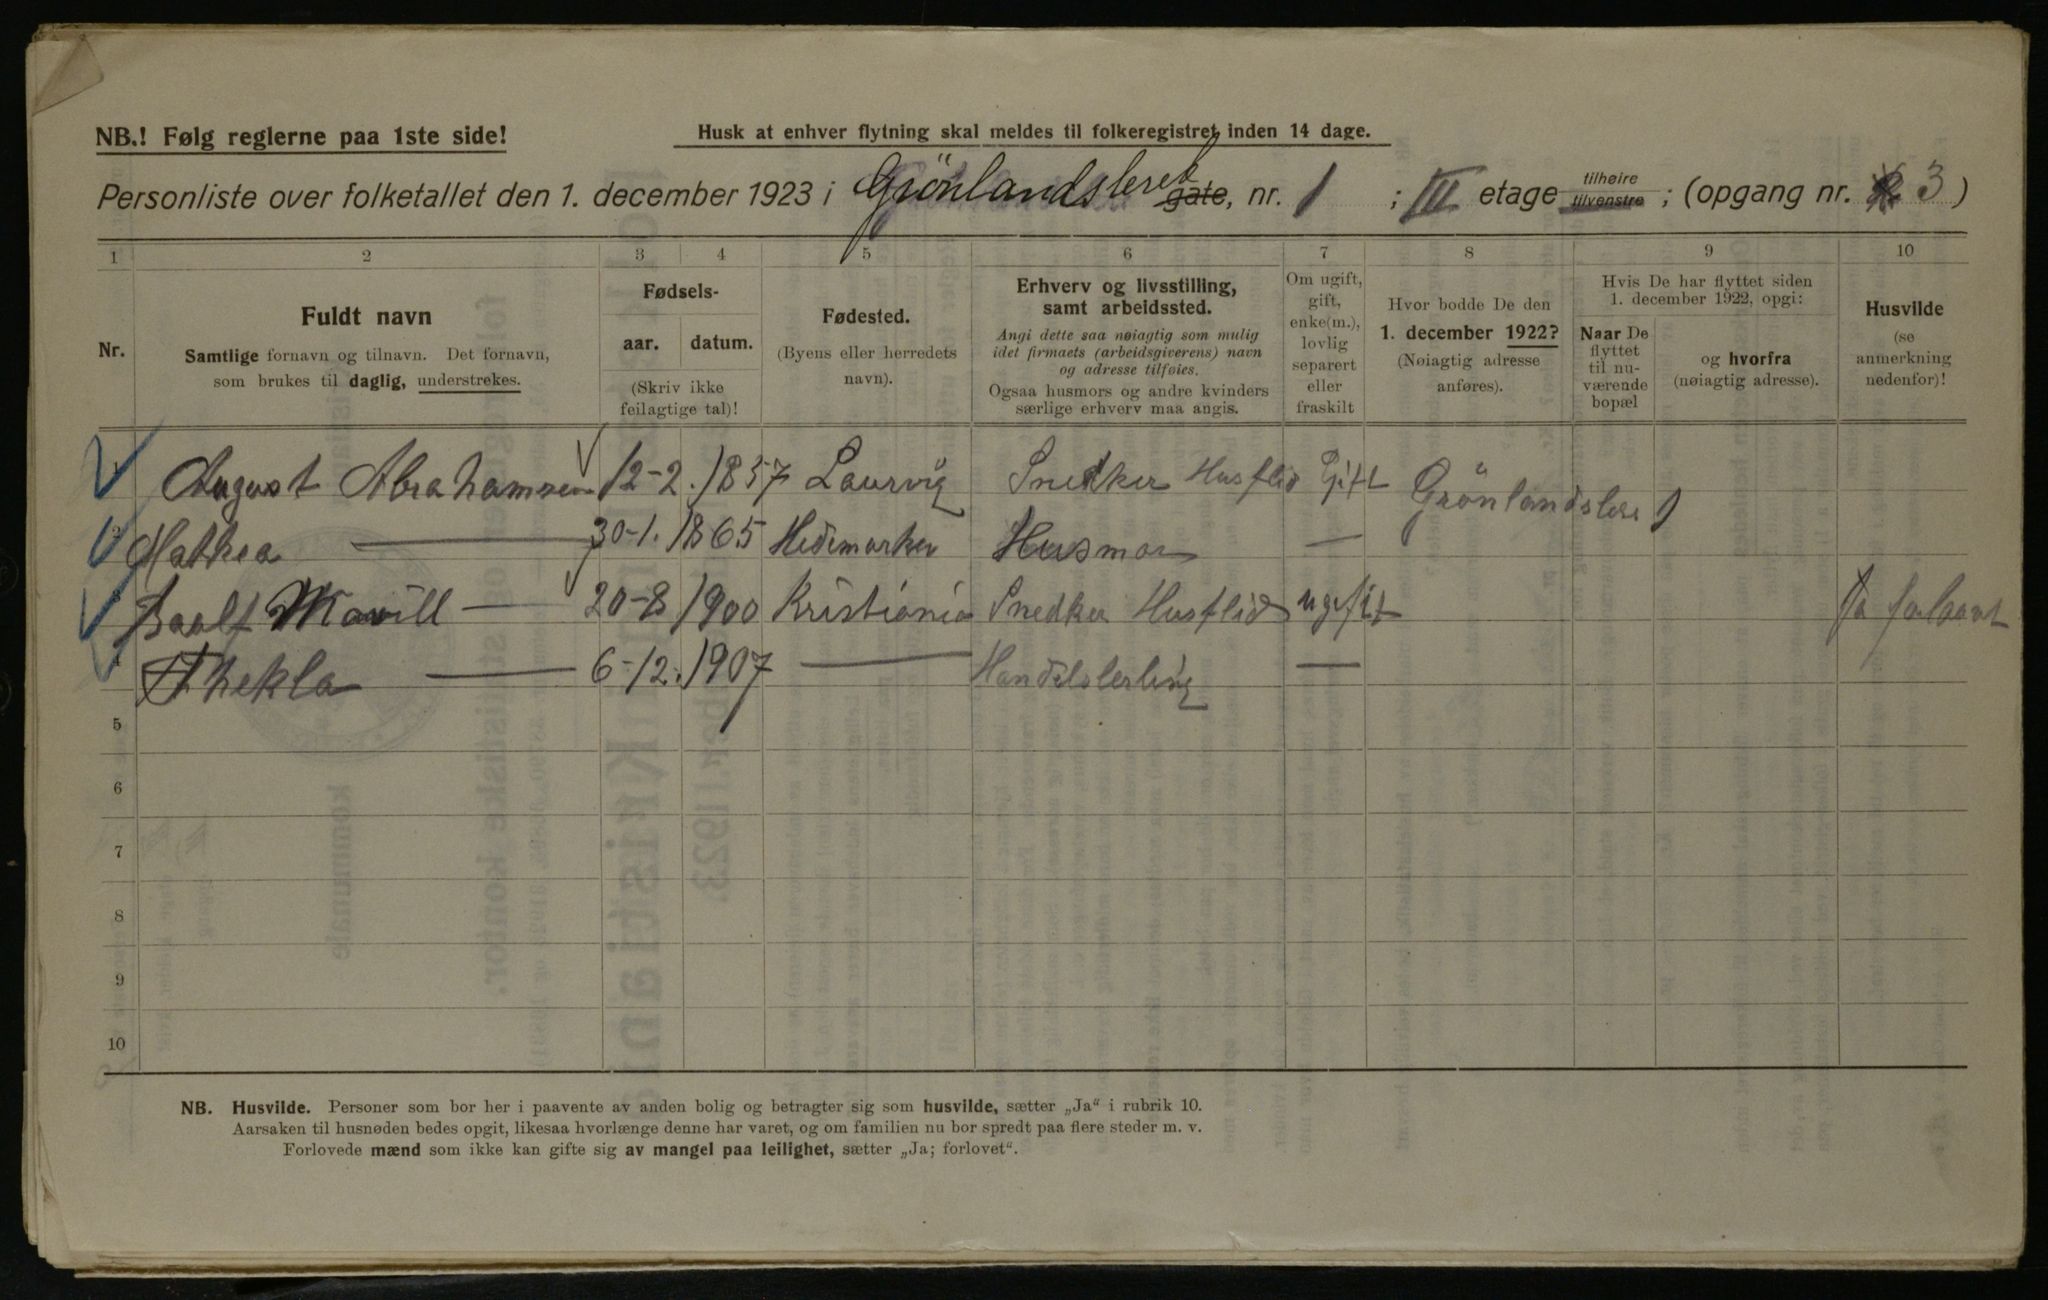 NB.! Følg reglerne paa 1ste side!
Husk at enhver flytning skal meldes til folkeregistret inden 14 dage.
Personliste over folketallet den 1. december 1923 i Grönlandsleret gate, nr. 1 ; III etage tilhøire tilvenstre ; (opgang nr. 3)
1 2 3 4 5 6 7 8 9 10
Nr.
Fuldt navn
Samtlige fornavn og tilnavn. Det fornavn,
som brukes til daglig, understrekes.
Fødsels-
aar. datum.
(Skriv ikke
feilagtige tal)!
Fødested.
(Byens eller herredets
navn).
Erhverv og livsstilling,
samt arbeidssted.
Angi dette saa nøiagtig som mulig
idet firmaets (arbeidsgiverens) navn
og adresse tilføies.
Ogsaa husmors og andre kvinders
særlige erhverv maa angis.
Om ugift,
gift,
enke(m.),
lovlig
separert
eller
fraskilt
Hvor bodde De den
1. december 1922?
(Nøiagtig adresse
anføres).
Hvis De har flyttet siden
1. december 1922, opgi:
Naar De
flyttet
til nu-
værende
bopæl
og hvorfra
(nøiagtig adresse).
Husvilde
(se
anmerkning
nedenfor)!
August Abrahamsen 12-2. 1857 Laurvig Snedker Husflid Gift Grönlandslere 1
2 Mathea — 30-1. 1865 Hedemarken Husmor —
3 — 20-8 1900 Kristiania Snedker Husflid ugift Ja forlovet
4 Thekla — 6-12. 1907 — Handelslerling —
5
6
7
8
9
10
NB. Husvilde. Personer som bor her i paavente av anden bolig og betragter sig som husvilde, sætter „Ja“ i rubrik 10.
Aarsaken til husnøden bedes opgit, likesaa hvorlænge denne har varet, og om familien nu bor spredt paa flere steder m. v.
Forlovede mænd som ikke kan gifte sig av mangel paa leilighet, sætter „Ja; forlovet“.